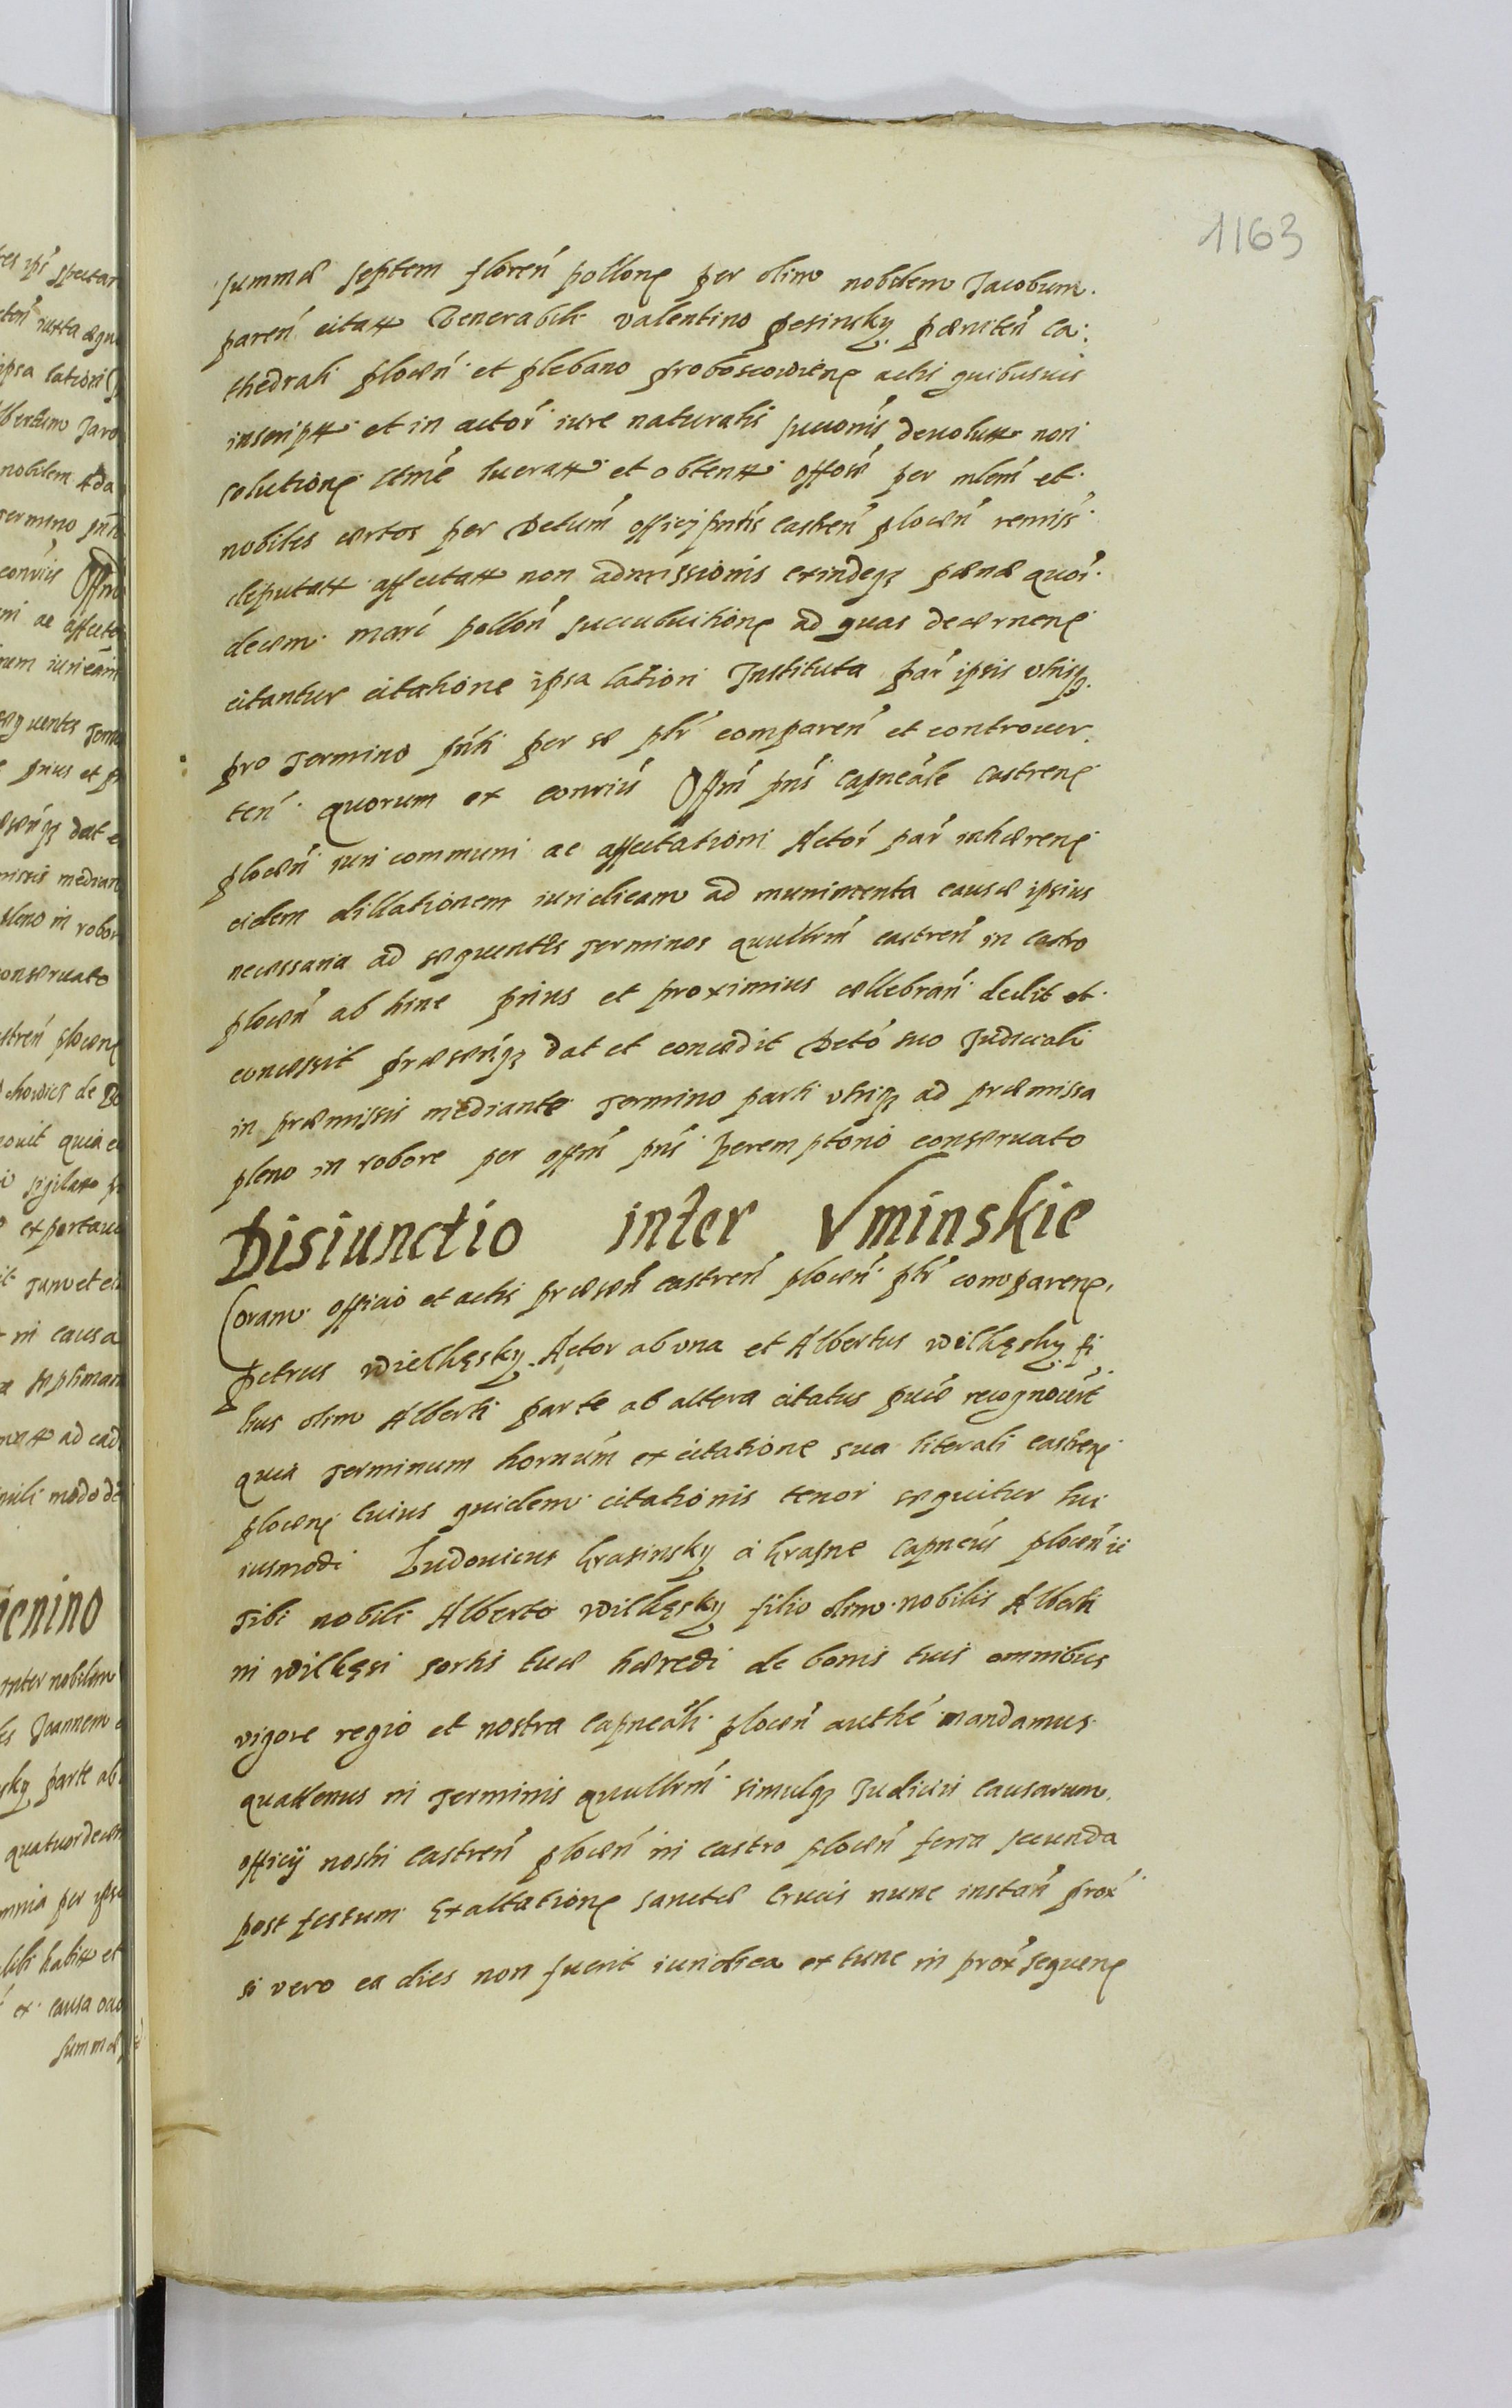 1163
summæ septem floreń pollonę per olim nobilem Jacobum
pareń citatt Venerabili Valentino Pesinsky pæniteń Ca:
thedrali ploceń et plebano proboscovienę actis quibusuis
inscriptt et in actoŕ iure naturalis succonis deuolutt non
solutionę item lucratt et obtentt offose per mlem et
nobiles certos per Detum officij pntis castreń ploceń remiss
deputatt affectatt non admissionis exindeqꝫ pænæ quor
decem marć polloń succubuitionę ad quas decernenę
citantur citatione ipsa lationi Instituta par ipsis vtrisqꝫ
pro Termino pnti per se plr compareń et controuer
teń quorum ex conuiis Offm pns Capneale Castrenę
ploceń iuri communi ac affectationi Actoŕ par inhærenę
eidem dillationem iuridicam ad munimenta causæ ipsius
necessaria ad sequentes Terminos quællrm castreń in Castro
ploceń ab hinc prius et proximius cællebrań dedit et
concessit præsentqꝫ dat et concædit Deto suo Judiciali
in præmissis mediante Termino parti vtriqꝫ ad præmissa
pleno in robore per offm pns peremptorio conseruato
Disiunctio inter Vminskie
Coram officio et actis præseń castreń ploceń plr comparenę
Petrus Wielkęsky Actor ab vna et Albertus Wilkęsky fi
lius olim Alberti parte ab altera citatus puce recognouert
quia Terminum hornum ex citatione sua literali castrenę
plocenę Cuius quidem citationis tenor sequitur hui
iusmodi Ludouicus Krasinsky a Krasne Capneus ploceń ii
Tibi nobili Alberto Wilkęsky filio olim nobilis Alberti
in Wilkęsi sortis tuæ hæredi de bonis tuis omnibus
vigore regio et nostra Capneali ploceń authe mandamus
quattenus in Terminis quællrm simulqꝫ Judicii Causarum
officij nostri Castreń ploceń in castro ploceń feria secunda
post festum Exaltationę sanctæ Crucis nunc instań prox
si vero ea dies non fuerit iuridica ex tunc in prox sequenę